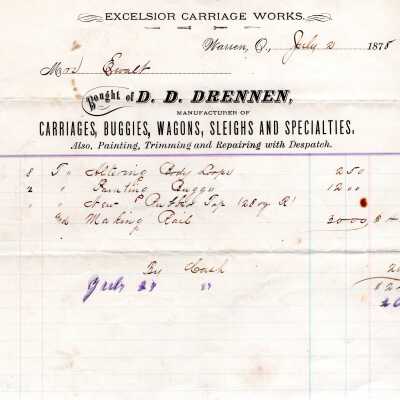 EXCELSIOR CARRIAGE WORKS.
Warren, O., July 2 1878
Mrs Ewalt
Bought of D. D. DRENNEN,
MANUFACTURER OF
CARRIAGES, BUGGIES, WAGONS, SLEIGHS AND SPECIALTIES.
Also, Painting, Trimming and Repairing with Despatch.
8 To Altering Body Loops 2 50
2 " Painting Buggy 12 00
" " New Top
Making Rail 30 00
By Cash
July "